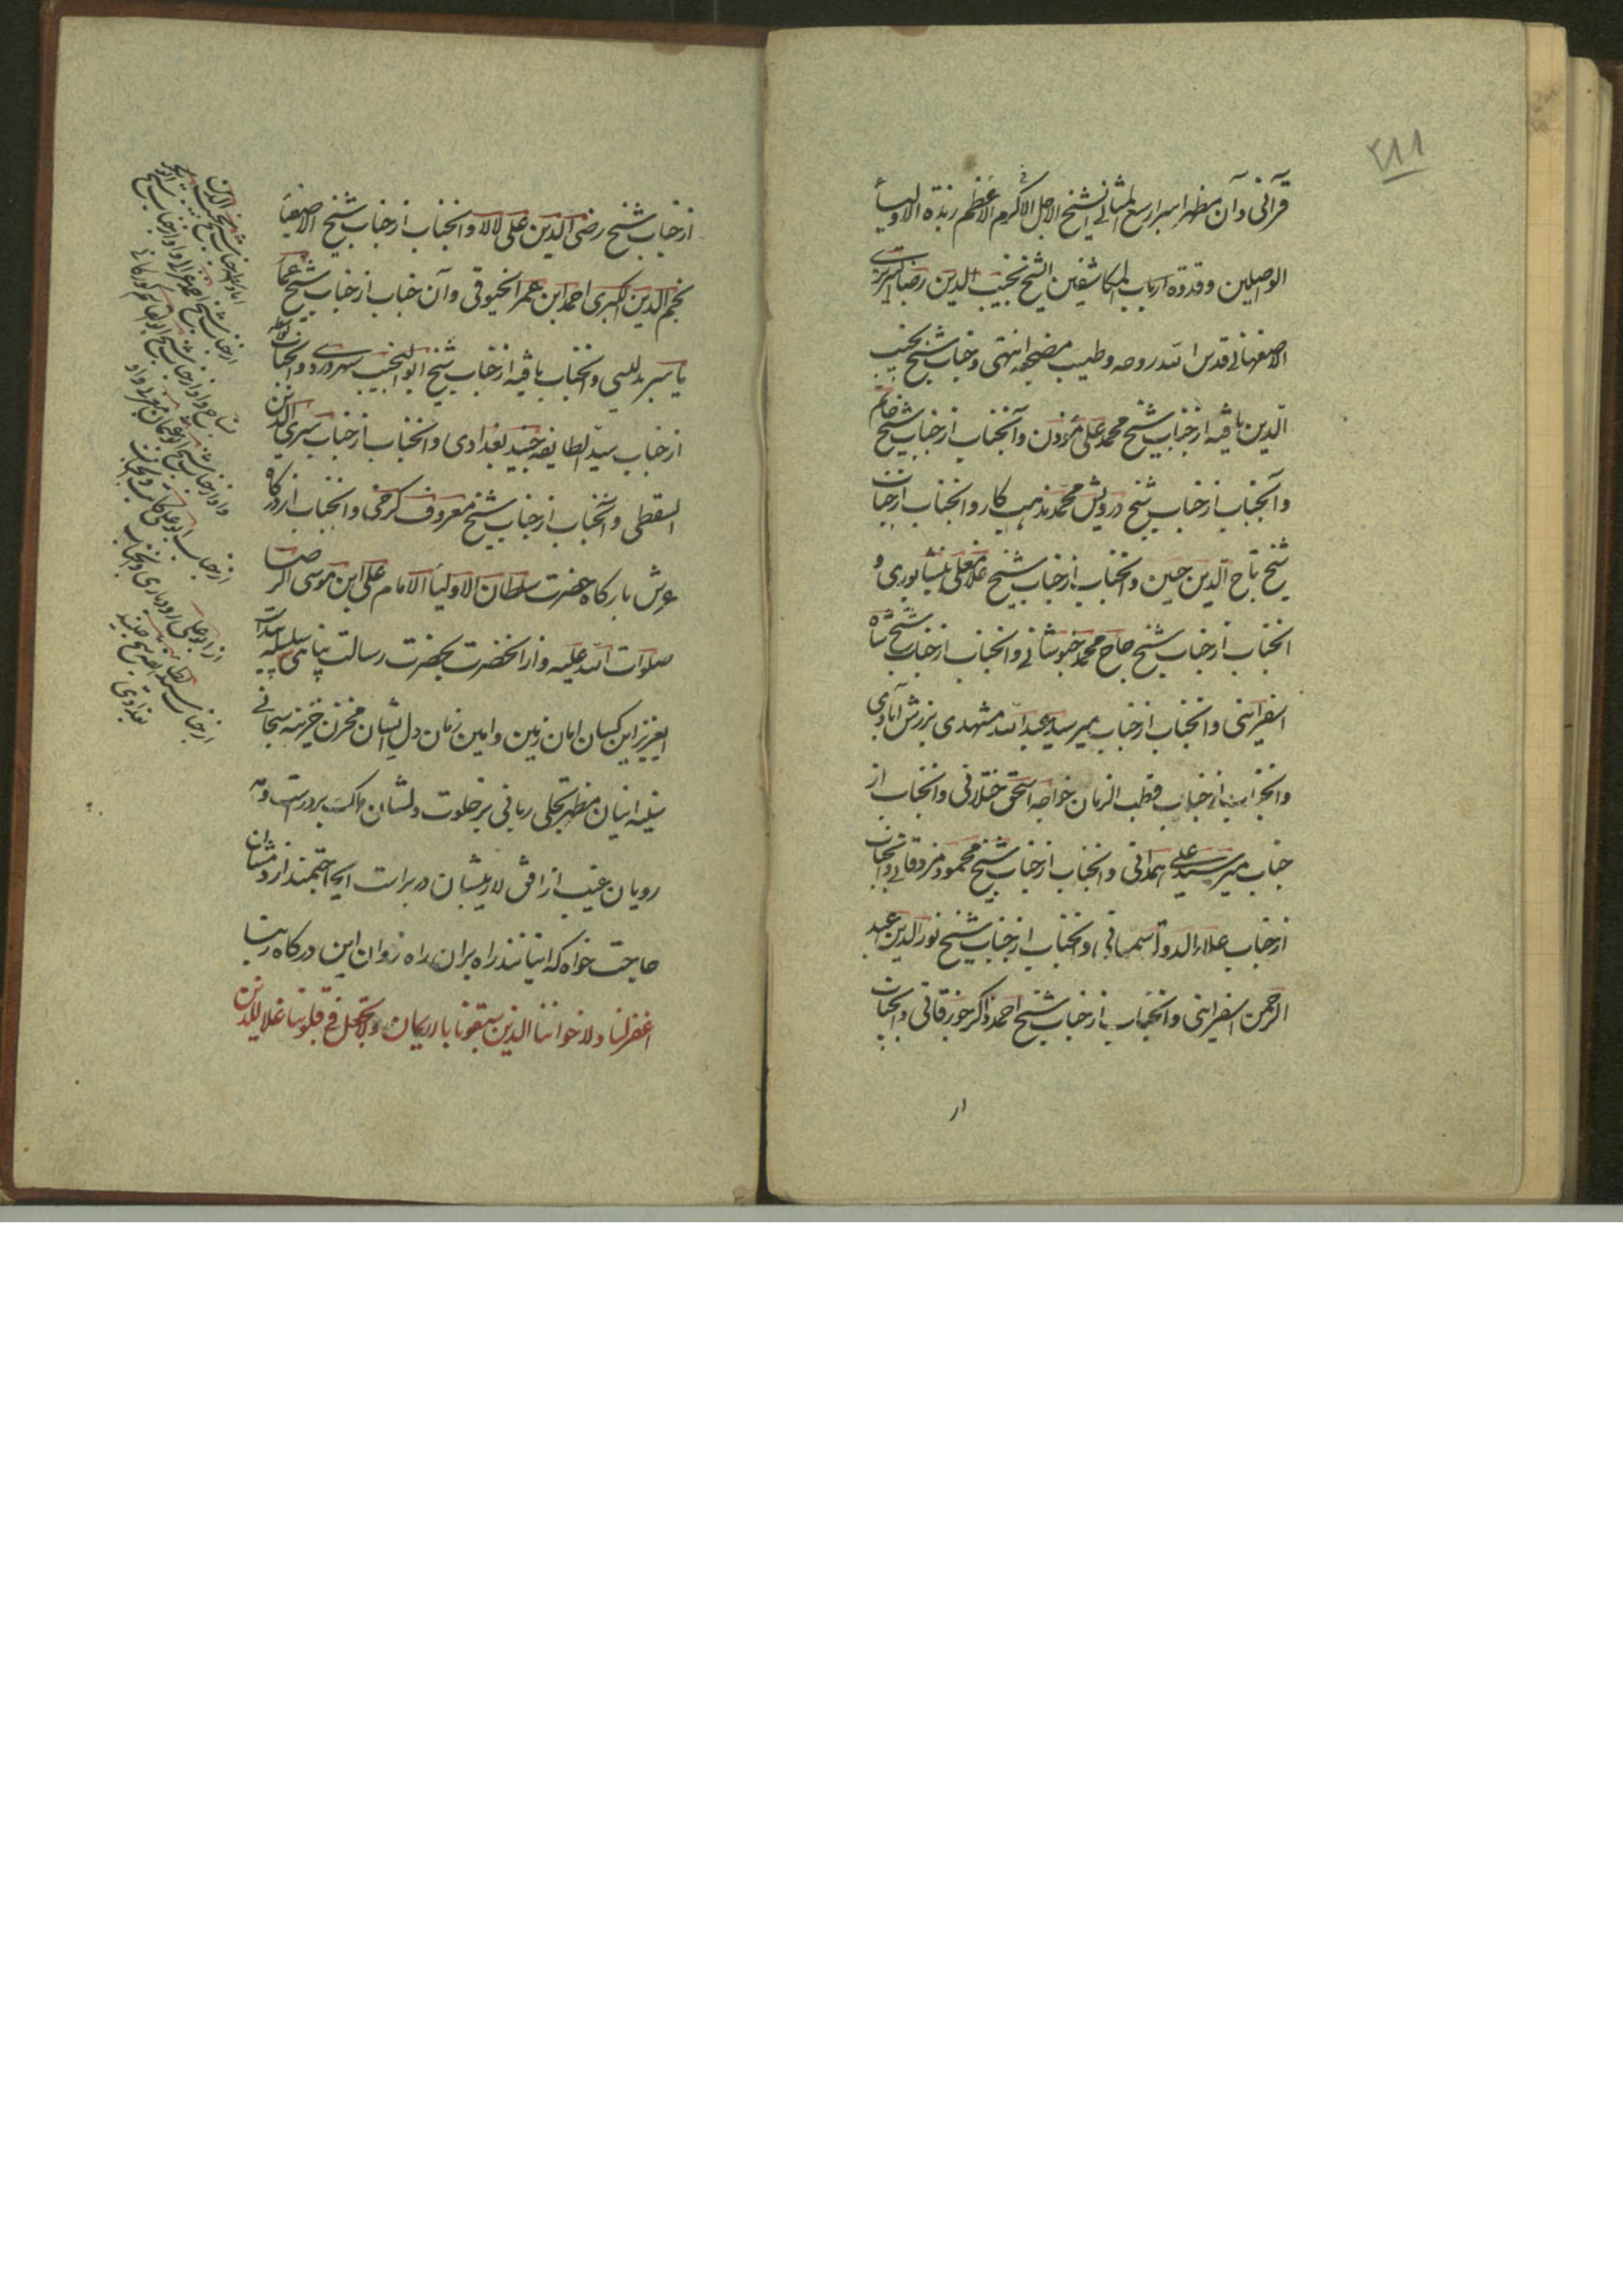 ۲۸۸
قرآنی و آن مظهر اسرار سبع المثانی الشیخ الاجل الاکرم الاعظم زبدة الاولیاء
الواصلین و قدوة ارباب المکاشفین الشیخ نجیب الدین رضا تبریزی
الاصفهانی قدس الله روحه و طیب مضجعه انتهی و جناب شیخ نجیب
الدین یافته از جناب شیخ محمد علی مؤذن و آنجناب از جناب شیخ حاتم
و آنجناب از جناب شیخ درویش محمد مذهب کار و آنجناب از جناب
شیخ تاج الدین حسین و آنجناب از جناب شیخ غلامعلی نیشابوری و
آنجناب از جناب شیخ حاج محمد خبوشانی و آنجناب از جناب شیخ شاه
اسفراینی و آنجناب از جناب میر سید عبدالله مشهدی برزش آبادی
و آنجناب از جناب قطب الزمان خواجه اسحق ختلانی و آنجناب از
جناب میر سید علی همدانی و آنجناب از جناب شیخ محمود مزدقانی و آنجناب
از جناب علاء الدوله سمنانی و آنجناب از جناب شیخ نور الدین عبد
الرحمن اسفراینی و آنجناب از جناب شیخ احمد ذاکر جورقانی و آنجناب
از
از جناب شیخ رضی الدین علی لالا و آنجناب از جناب شیخ الاصفیا
نجم الدین الکبری احمد ابن عمر الخیوقی و آن جناب از جناب شیخ عمار
یاسر بدلیسی و آنجناب یافته از جناب شیخ ابو النجیب سهروردی و آنجناب
از جناب سید الطایفه جنید بغدادی و آنجناب از جناب سری الدین
السقطی و آنجناب از جناب شیخ معروف کرخی و آنجناب از درگاه
عرش بارگاه حضرت سلطان الاولیاء الامام علی ابن موسی الرضا
صلوات الله علیه و از آنحضرت بحضرت رسالت پناهی سلسله
ایعزیز این کسان امان زمین و امین زمان دل ایشان مخزن خزینه سبحانی
سینه اینان مظهر تجلی ربانی بر خلوت دلشان
رویان غیب از افق لاریبشان در برات ایحاجتمند از در مشتان
حاجت خواه که اینانند راه بران راه روان این درگاه ربنا
اغفر لنا و لاخواننا الذین سبقونا بالایمان و لا تجعل فی قلوبنا غلا للذین
از جناب شیخ احمد غزالی و او از جناب شیخ ابوبکر
نساج و او از جناب شیخ ابوالقاسم کورکانی
و او از جناب شیخ ابو عثمان مغربی و او
از جناب ابو علی کاتب و آنجناب
از ابو علی رودباری و آنجناب
از جناب سید الطایفه شیخ جنید
بغدادی